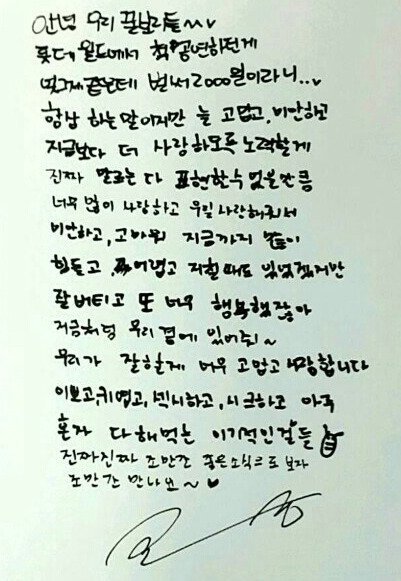 안녕 우리 꿀날라들~~♥
롯데월드에서 첫 공연하던게
엊그제 같은데 벌써 2000일이라니...♥
항상 하는말이지만 늘 고맙고, 미안하고
지금보다 더 사랑하도록 노력할게
진짜 말로는 다 표현할수 없을만큼
너무 많이 사랑하고 우릴 사랑해줘서
미안하고, 고마워 지금까지 많이
힘들고 어렵고 지칠때도 있었겠지만
잘버티고 또 너무 행복했잖아
지금처럼 우리 곁에 있어줘~
우리가 잘할게 너무 고맙고 사랑합니다
이쁘고, 귀엽고, 섹시하고, 시크하고 아주
혼자 다해먹는 이기적인 것들
진짜진짜 조만간 좋은소식으로 보자
조만간 만나요~♥